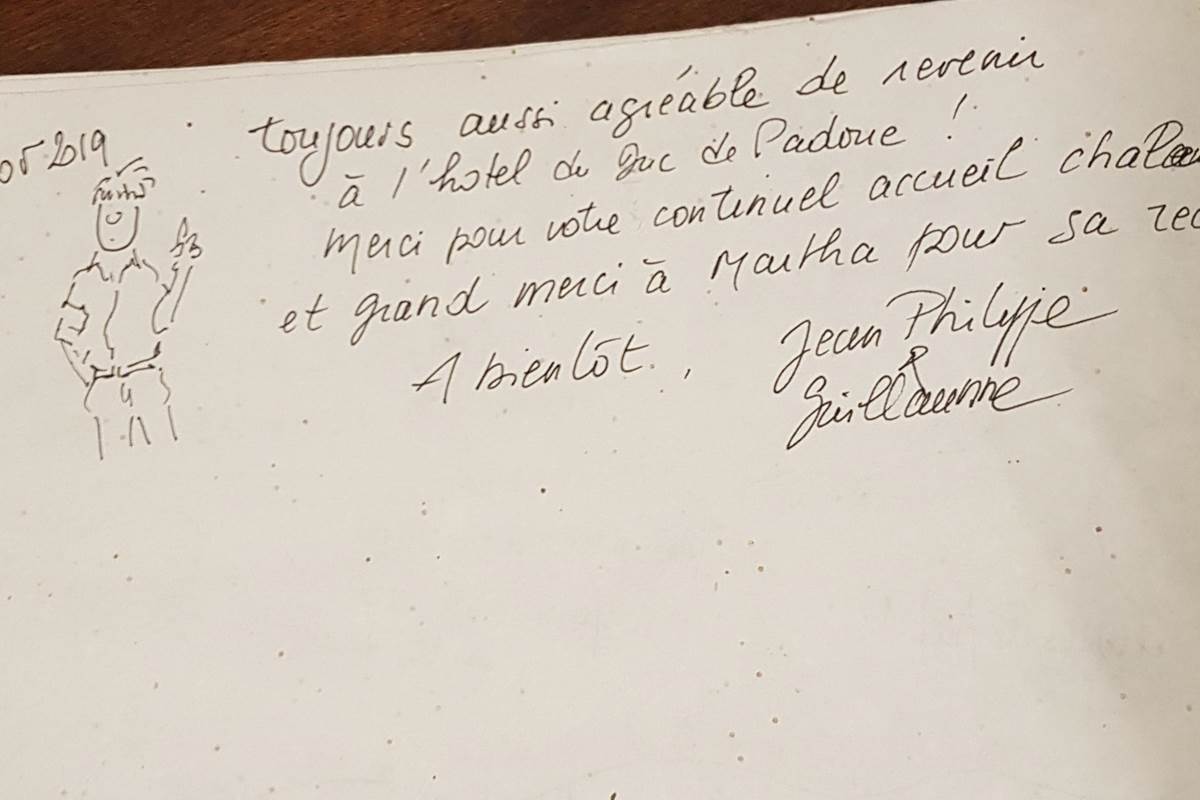 05 2019
toujours aussi agréable de revenir
à l'hotel du Duc de Padoue !
merci pour votre continuel accueil
et grand merci à Martha pour sa
A bientôt. , Jean Philippe
&
Guillaume